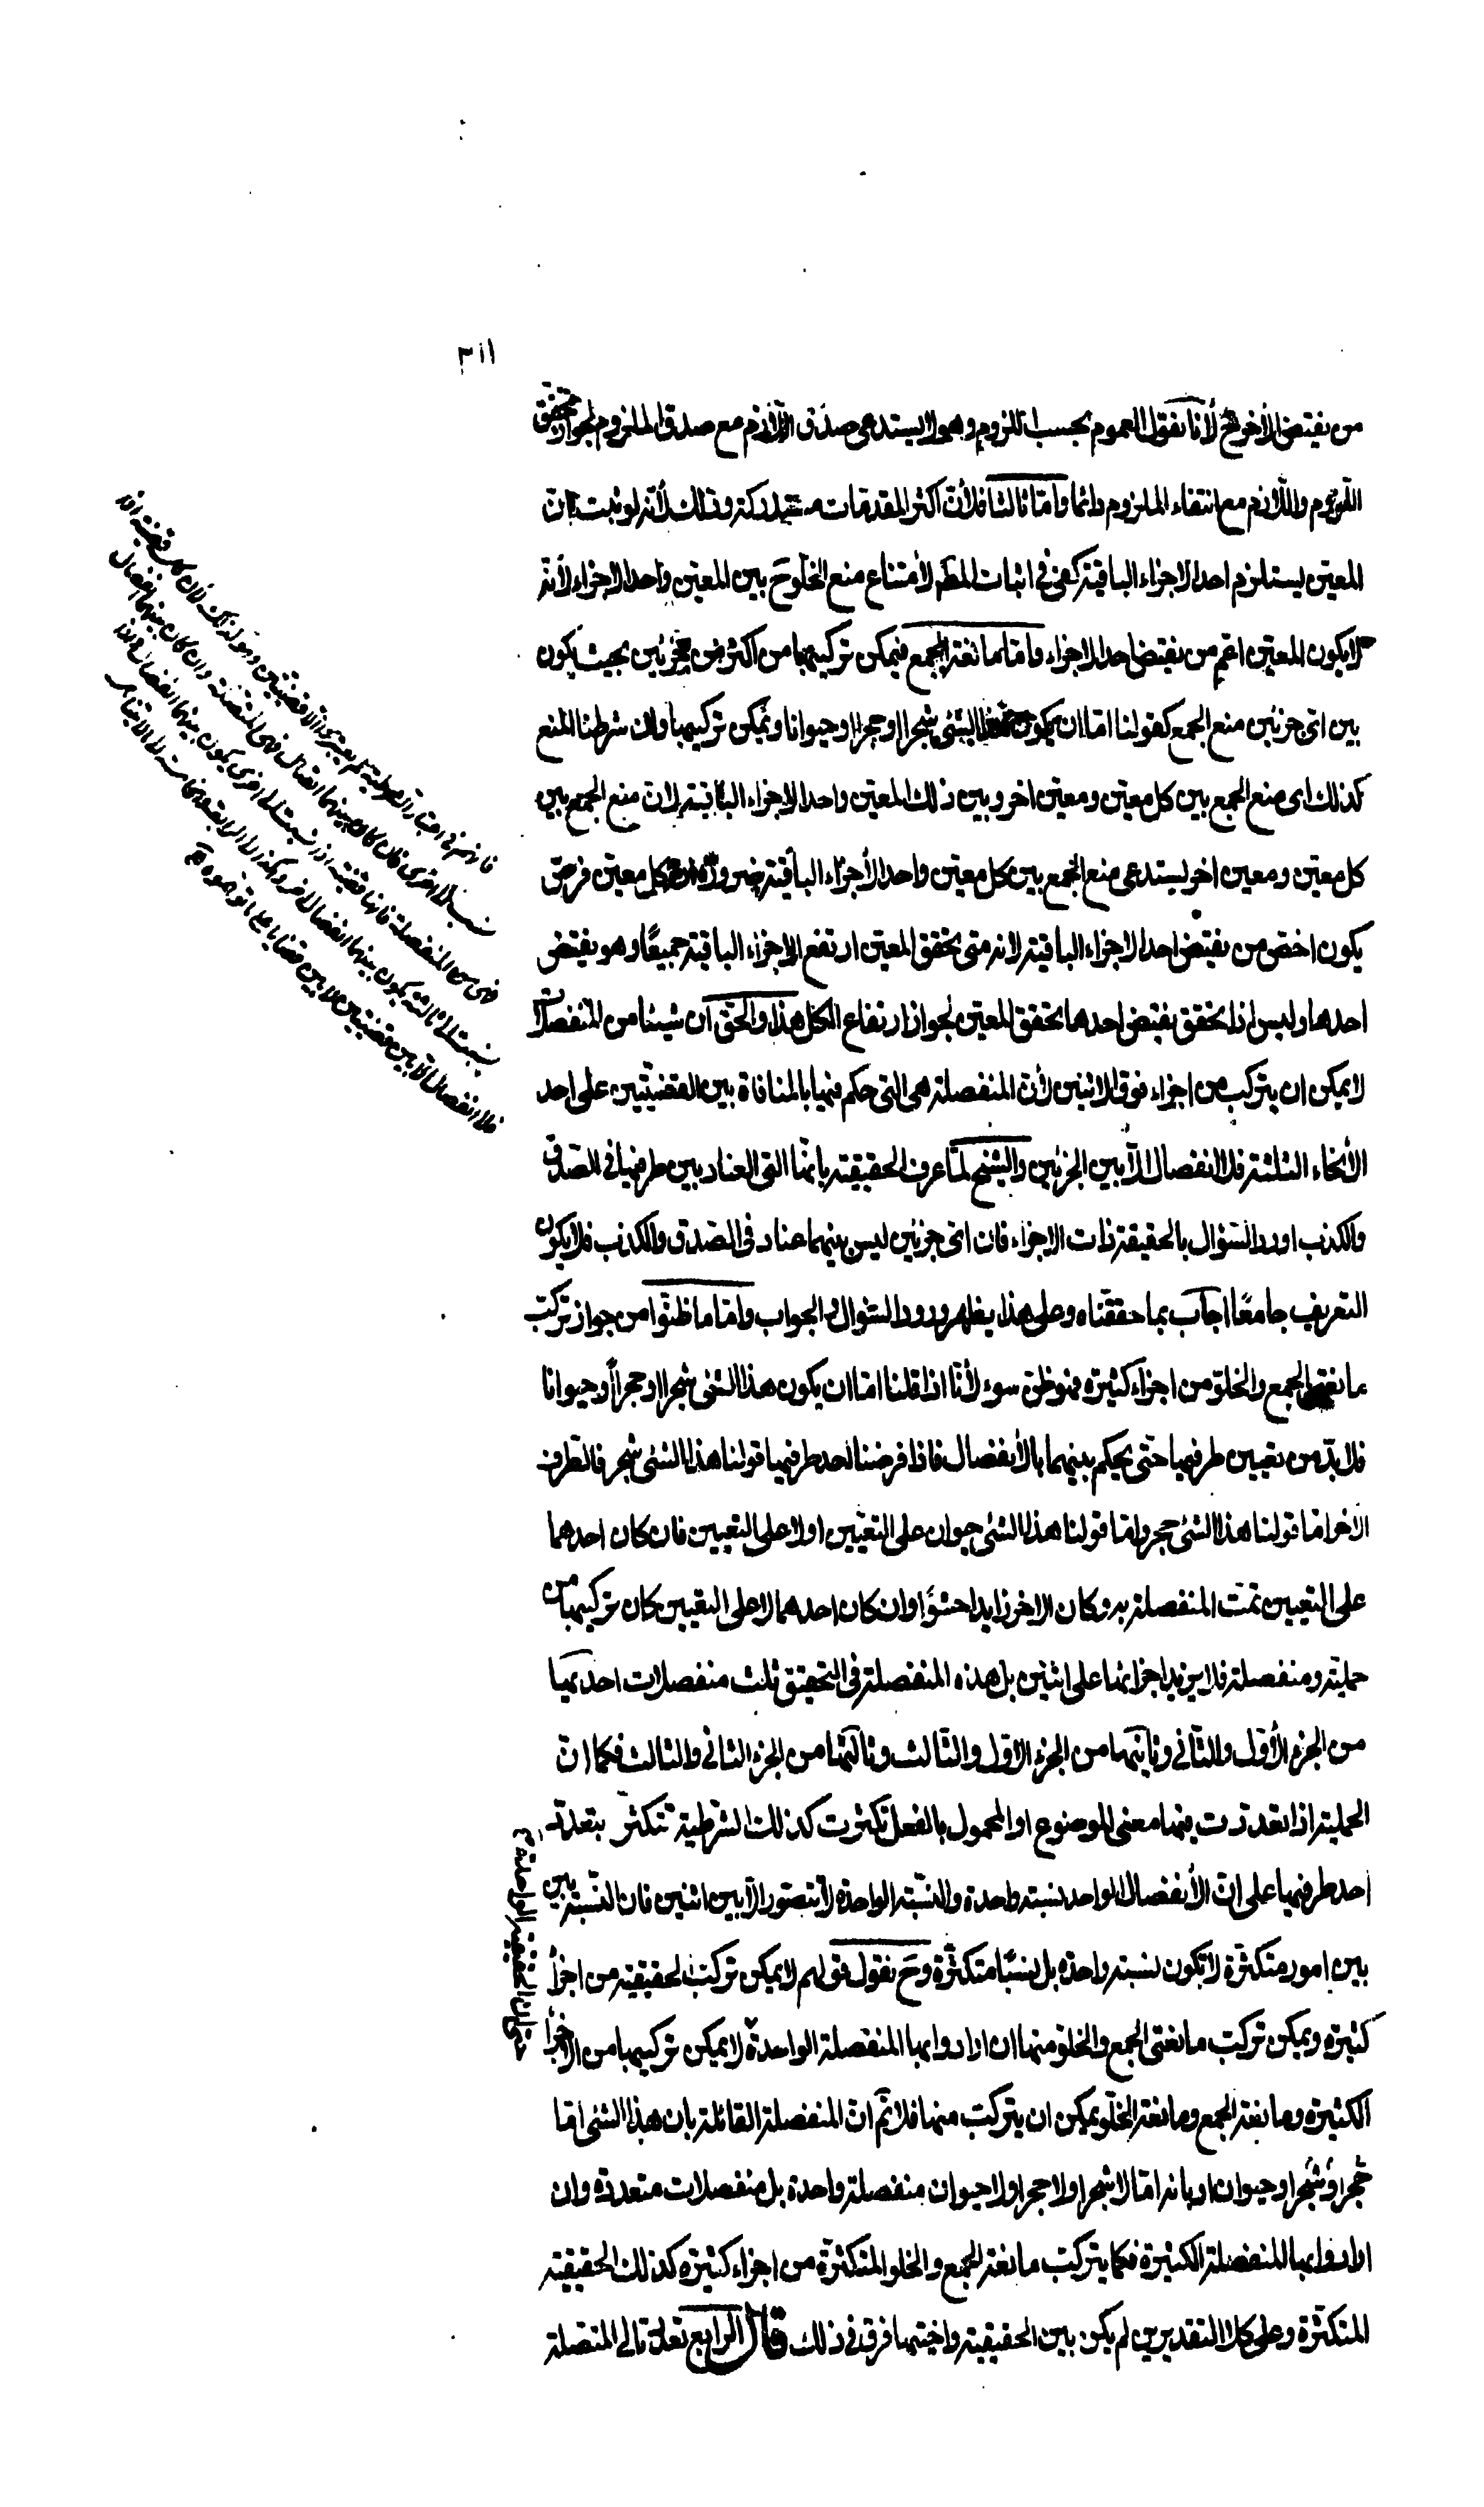 ٣١١
من نقيض الأخر لأنا نقول العموم بحسب اللزوم وهو لا يستدعى صدق اللازم مع صدق الملزوم لجواز تحقق
اللزوم واللازم مع انتفاء الملزوم دائما وأما ثالثا فلأن اكثر المقدمات مستدركة وذلك لأنه لو ثبت ان
المعين يستلزم احد الاجزاء الباقية كفى فى اثبات المط لامتناع منع الخلو ح بين المعين واحد الاجزاء لأنه
لا يكون المعين اعم من نقيض احد الاجزاء واما مانعة الجمع فيمكن تركيبها من اكثر من جزئين بحيث يكون
بين اى جزئين منع الجمع كقولنا اما ان يكون هذا الشئ شجرا او حجرا او حيوانا ويمكن تركيبها وان شرطنا المنع
كذلك اى منع الجمع بين كل معين ومعين اخر وبين ذلك المعين واحد الاجزاء الباقية لان منع الجمع بين
كل معين ومعين اخر يستدعى منع الجمع بين كل معين واحد الأجزاء الباقية ضرورة ان كل معين فرض
يكون اخص من نقيض احد الاجزاء الباقية لانه متى تحقق المعين ارتفع الاجزاء الباقية جميعًا وهو نقيض
احدها وليس اذا تحقق نقيض احدها تحقق المعين لجواز ارتفاع الكل هذا والحق ان شيئا من المنفصلات
لا يمكن ان يتركب من اجزاء فوق الاثنين لأن المنفصلة هى التى حكم فيها بالمنافاة بين القضيتين على احد
الأنحاء الثلثة فلا انفصال الا بين الجزئين والشيخ لما عرف الحقيقية بانها التى العناد بين طرفيها فى الصدق
والكذب اورد السؤال بالحقيقة ذات الاجزاء فان اى جزئين ليس بينهما عناد فى الصدق والكذب فلا يكون
التعريف جامعًا اجاب بما حققناه وعلى هذا يظهر ورود السؤال والجواب واما ما ظنوا من جواز تركب
مانعتى الجمع والخلو من اجزاء كثيرة فهو ظن سوء لأنا اذا قلنا اما ان يكون هذا الشئ شجرا او حجرا أو حيوانا
فلا بد من تعيين طرفيها حتى يحكم بينهما بالأنفصال فاذا فرضنا احد طرفيها قولنا هذا الشئ شجر فالطرف
الاخر اما قولنا هذا الشئ حجر واما قولنا هذا الشئ حيوان على التعيين او لا على التعيين فان كان احدهما
على التعيين تمت المنفصلة به وكان الاخر زايدا حشوًا وان كان احدهما لا على التعيين كان تركيبها من
حملية ومنفصلة فلا يزيد اجزائها على اثنين بل هذه المنفصلة فى التحقيق ثلث منفصلات احديها
من الجزء الأول والثانى وثانيتها من الجزء الاول والثالث وثالثتها من الجزء الثانى والثالث فكما ان
الحملية اذا تعددت فيها معنى الموضوع او المحمول بالفعل تكثرت كذلك الشرطية تتكثر بتعدد
احد طرفيها على ان الأنفصال الواحد نسبة واحدة والنسبة الواحدة لا تتصور الا بين اثنين فان النسبة بين
بين امور متكثرة لا تكون نسبة واحدة بل نسبًا متكثرة وح نقول قولهم لا يمكن تركب الحقيقية من اجزأ
كثيرة ويمكن تركب مانعتى الجمع والخلو منها ان ارادوا بها المنفصلة الواحدة لا يمكن تركيبها من الاجزأ
الكثيرة ومانعة الجمع ومانعة الخلو يمكن ان يتركب منها فلا نم ان المنفصلة القائلة بان هذا الشئ اما
حجر أو شجر او حيوان او بانه اما لا شجر او لا حجر او لا حيوان منفصلة واحدة بل منفصلات متعددة وان
ارادوا بها المنفصلة الكثيرة فكما يتركب مانعة الجمع والخلو المتكثرة من اجزاء كثيرة كذلك الحقيقية
المتكثرة وعلى كلا التقديرين لم يكن بين الحقيقية واختيها فرق فى ذلك قال الرابع تعدد تالى المتصلة